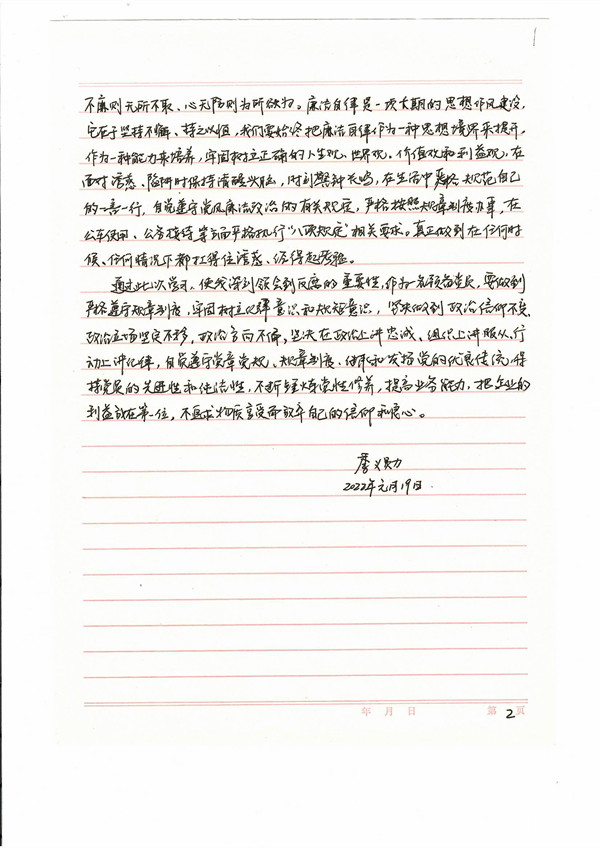 不廉则无所不取、心无防则为所欲为。廉洁自律是一项长期的思想作风建设,
它在于坚持不懈、持之以恒,我们要始终把廉洁自律作为一种思想境界来提升,
作为一种能力来培养,牢固树立正确的人生观、世界观、价值观和利益观,在
面对诱惑、陷阱时保持清醒头脑,时刻警钟长鸣,在生活中严格规范自己
的一言一行,自觉遵守党风廉洁政治的有关规定,严格按照规章制度办事,在
公车使用、公务接待等方面严格执行“八项规定”相关要求。真正做到在任何时
候、任何情况下都抗得住诱惑、经得起考验。
通过此次学习,使我深刻领会到反腐的重要性,作为一名预备党员,要做到
严格遵守规章制度,牢固树立纪律意识和规矩意识,坚决做到政治信仰不变、
政治立场坚定不移,政治方向不偏,坚决在政治上讲忠诚、组织上讲服从、行
动上讲纪律,自觉遵守党章党规、规章制度、继承和发扬党的优良传统,保
持党员的先进性和纯洁性,不断锤炼党性修养,提高业务能力,把企业的
利益放在第一位,不追求物质享受而放弃自己的信仰和良心。
义勋
2022年元月19日
年 月 日 第 2 页